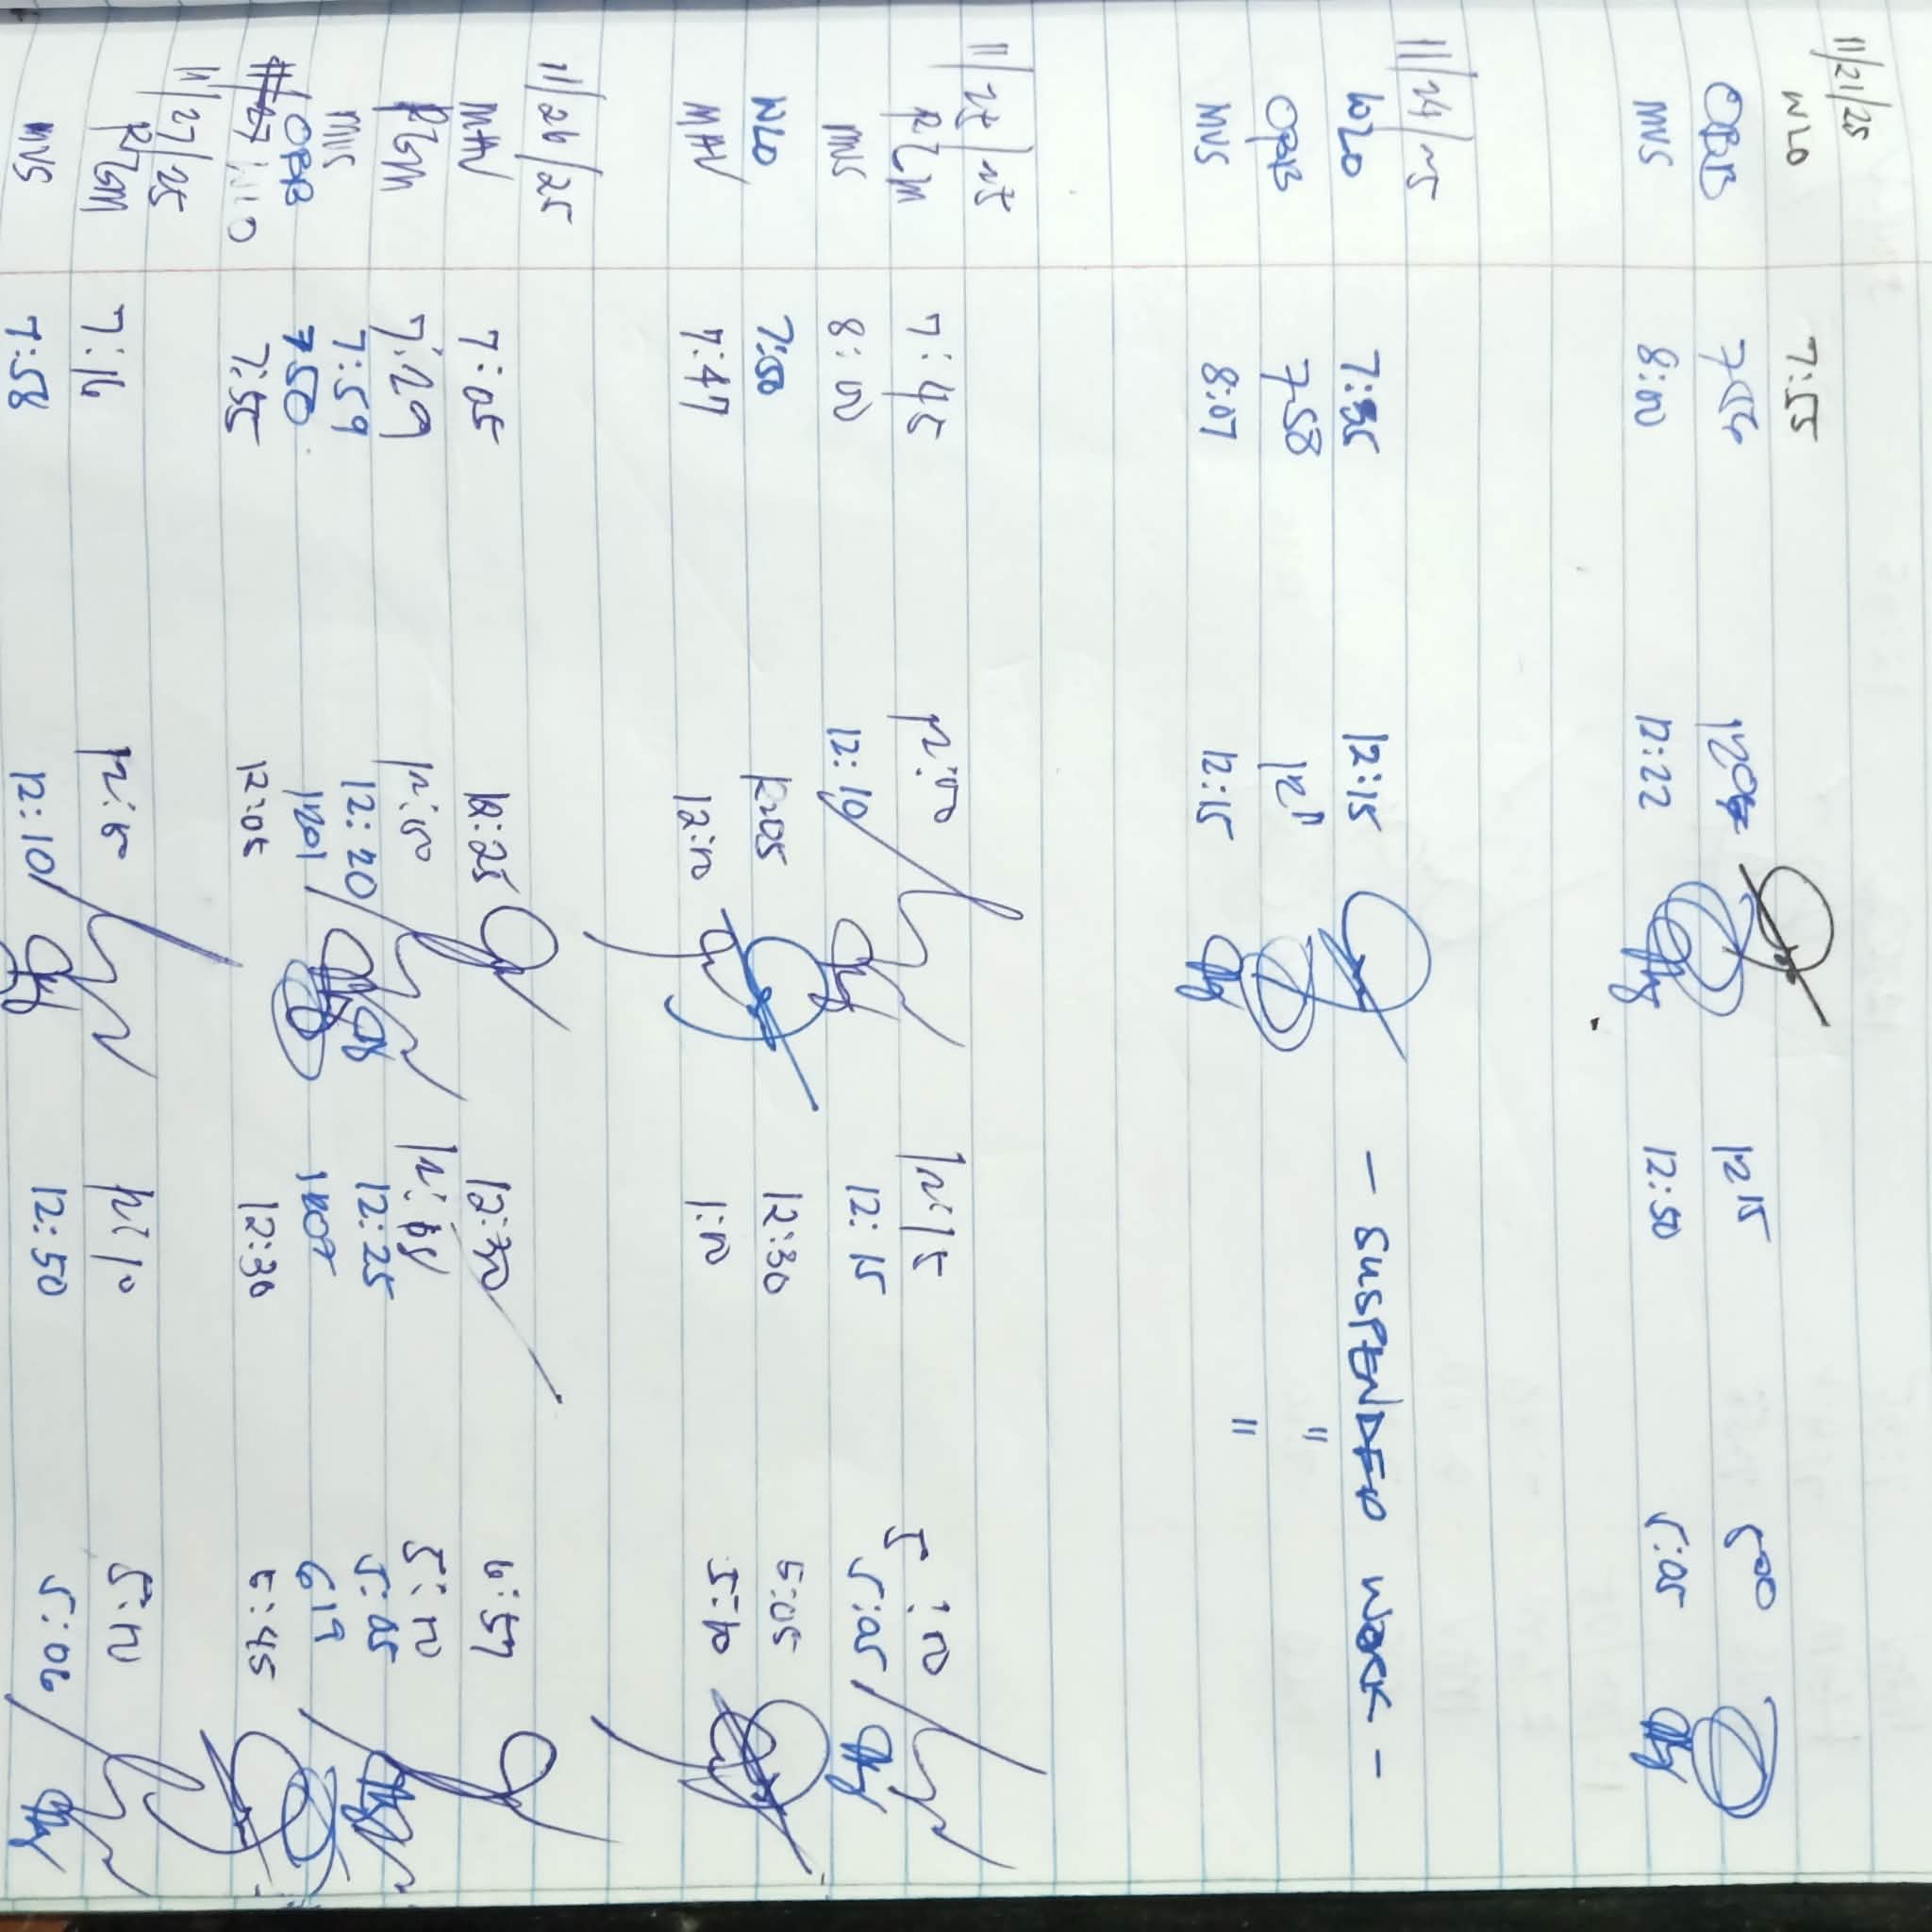 11/21/25
WLO 7:55
OBB 7:56 1215 500
MVS 8:00 12:22 12:50 5:05
11/24/25
WLO 7:35 12:15 - SUSPENDED WORK -
OBB 758 12" "
MVS 8:07 12:15 "
11/25/25
RLGM 7:45 12:00 12:15 5:00
MVS 8:00 12:10 12:15 5:05
WLO 7:50 1205 12:30 5:05
MAV 7:47 12:10 1:00 5:10
11/26/25
MAV 7:05 12:25 12:30 6:57
RLGM 7:29 12:10 5:10
MVS 7:59 12:20 12:25 5:05
OBB 750 1201 1207 619
WLO 7:55 12:05 12:30 5:45
11/27/25
RLGM 7:16 12:10 5:10
MVS 7:58 12:10 12:50 5:06